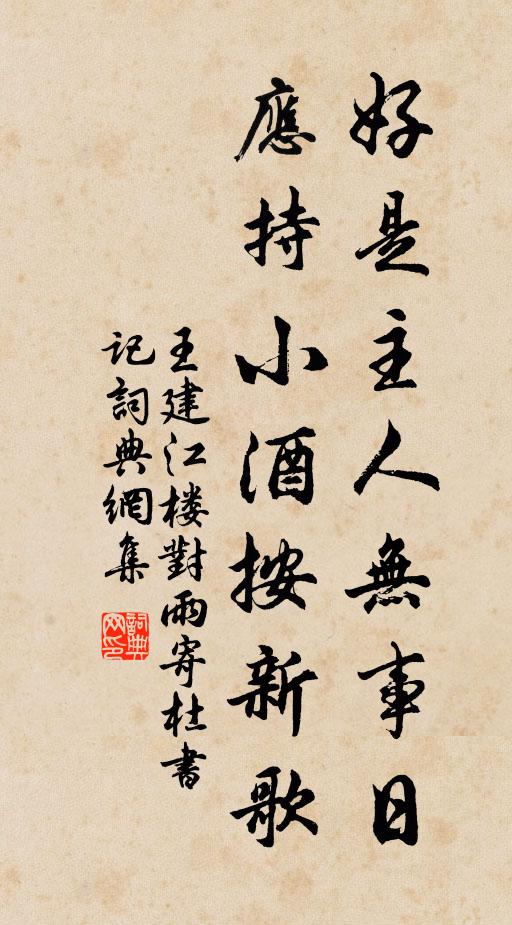 好是主人無事日
應持小酒按新歌
王建江楼對雨寄杜書
记詞典網集
詞典网印